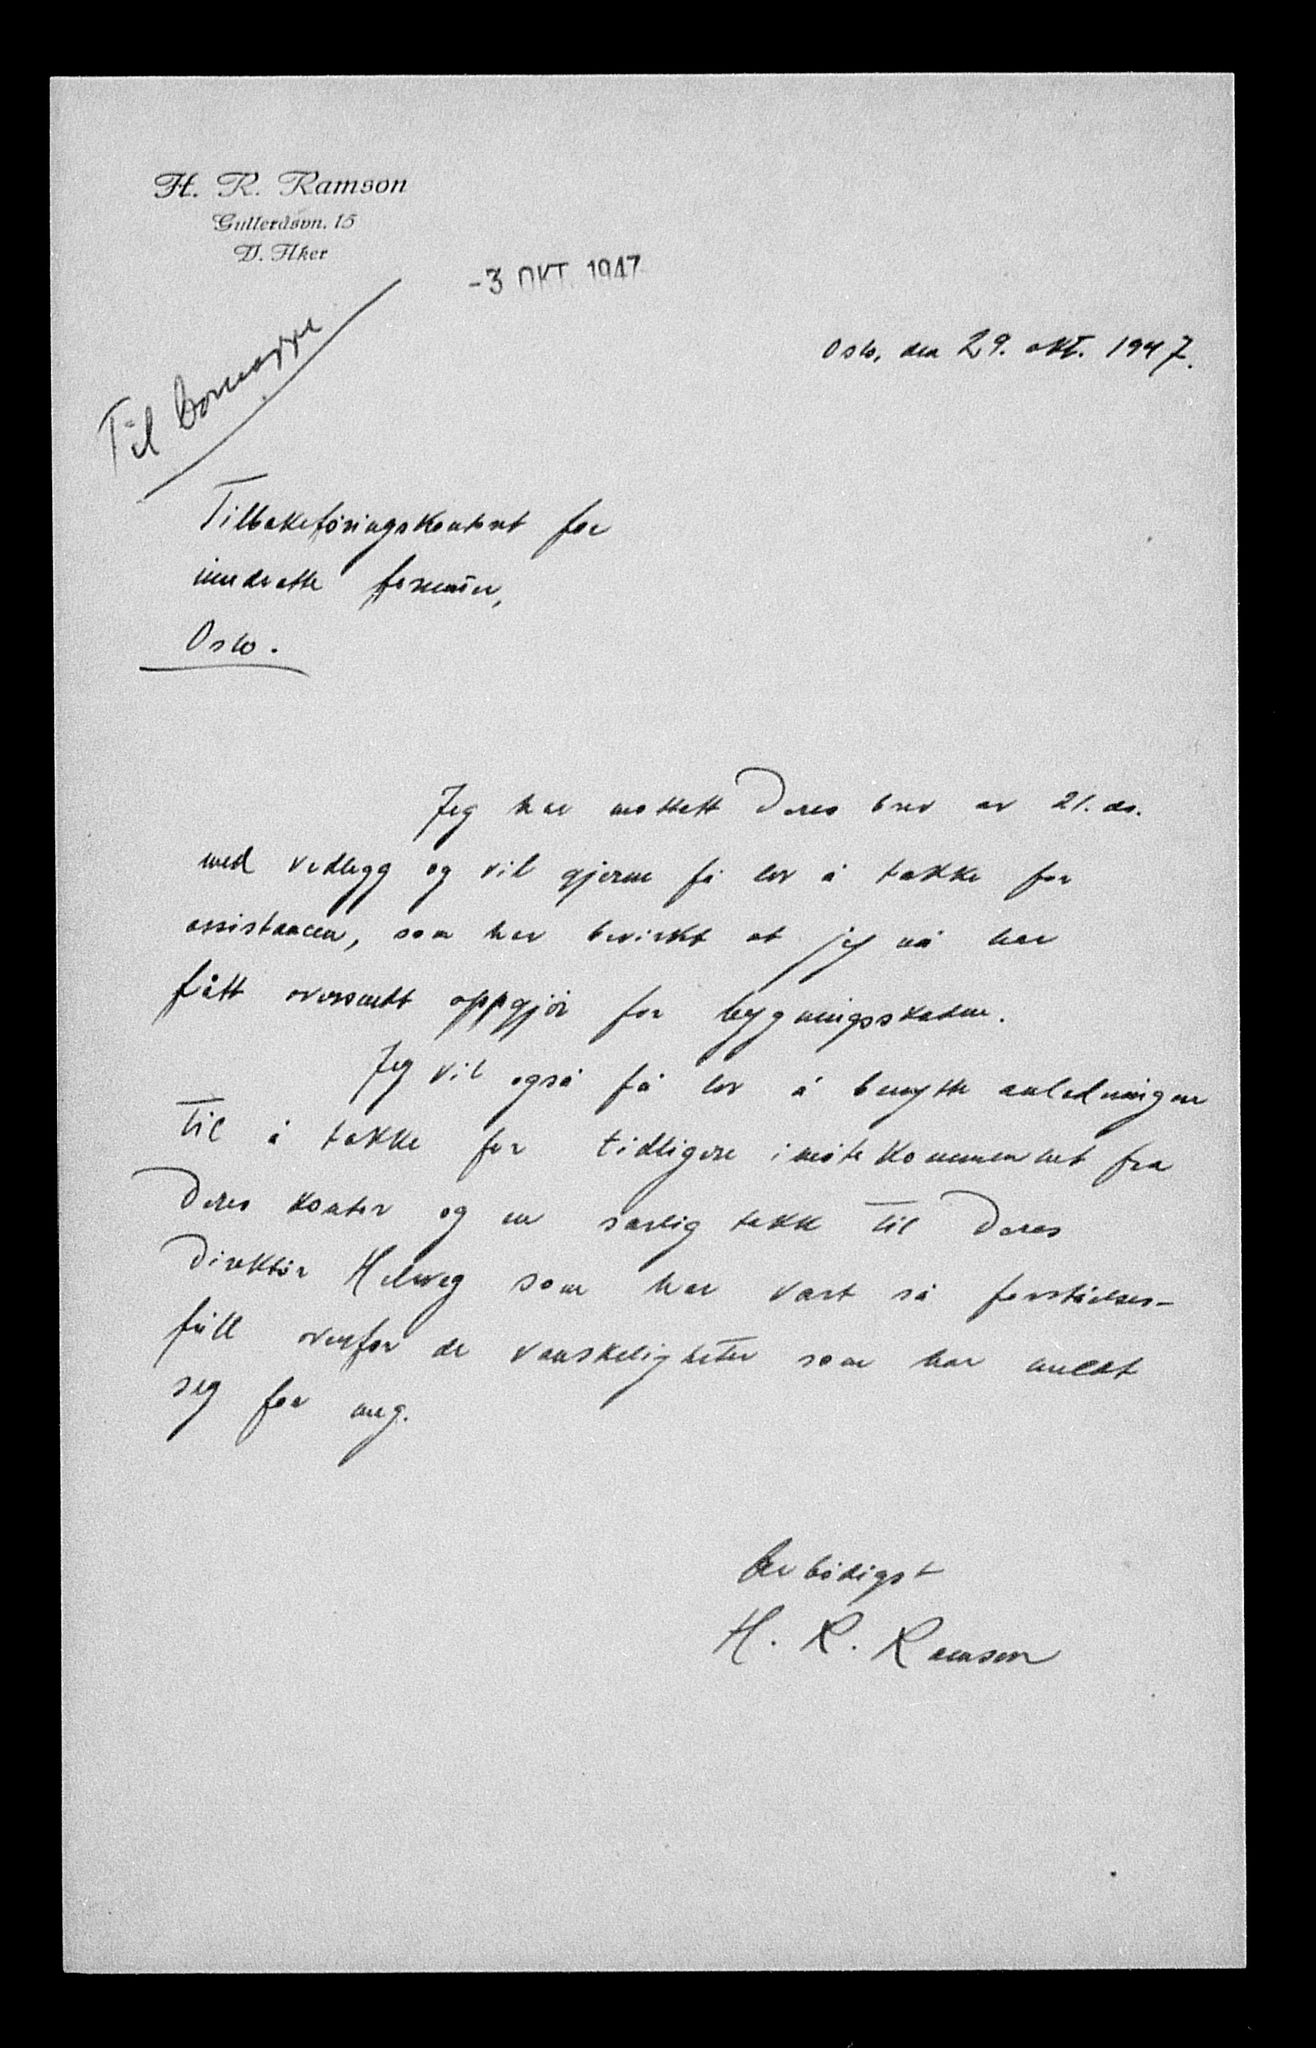 H. R. Ramson
Gulleråsvn. 15
V. Aker
-3 OKT. 1947
Oslo, den 29. okt. 1947.
Til bomappe
Tilbakeföringskontoret for
inndratte formuer,
Oslo.
Jeg har mottatt Deres brev av 21. ds.
med vedlegg og vil gjerne få lov å takke for
assistansen, som har bevirket at jeg nå har
fått oversendt oppgjör for bygningsskadene.
Jeg vil også få lov å benytte anledningen
til å takke for tidligere imötekommenhet fra
Deres kontor og en særlig takk til Deres
Direktör Helweg som har vært så forståelses-
full overfor de vanskeligheter som har meldt
seg for meg.
Ærbödigst
H. R. Ramson